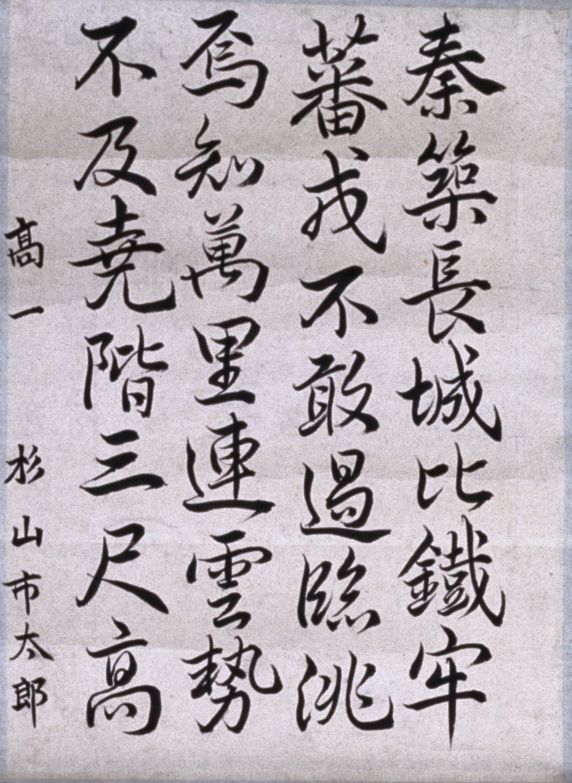 秦築長城比鐵牢
蕃戎不敢過臨洮
焉知萬里連雲勢
不及堯階三尺高
高一 杉山市太郎